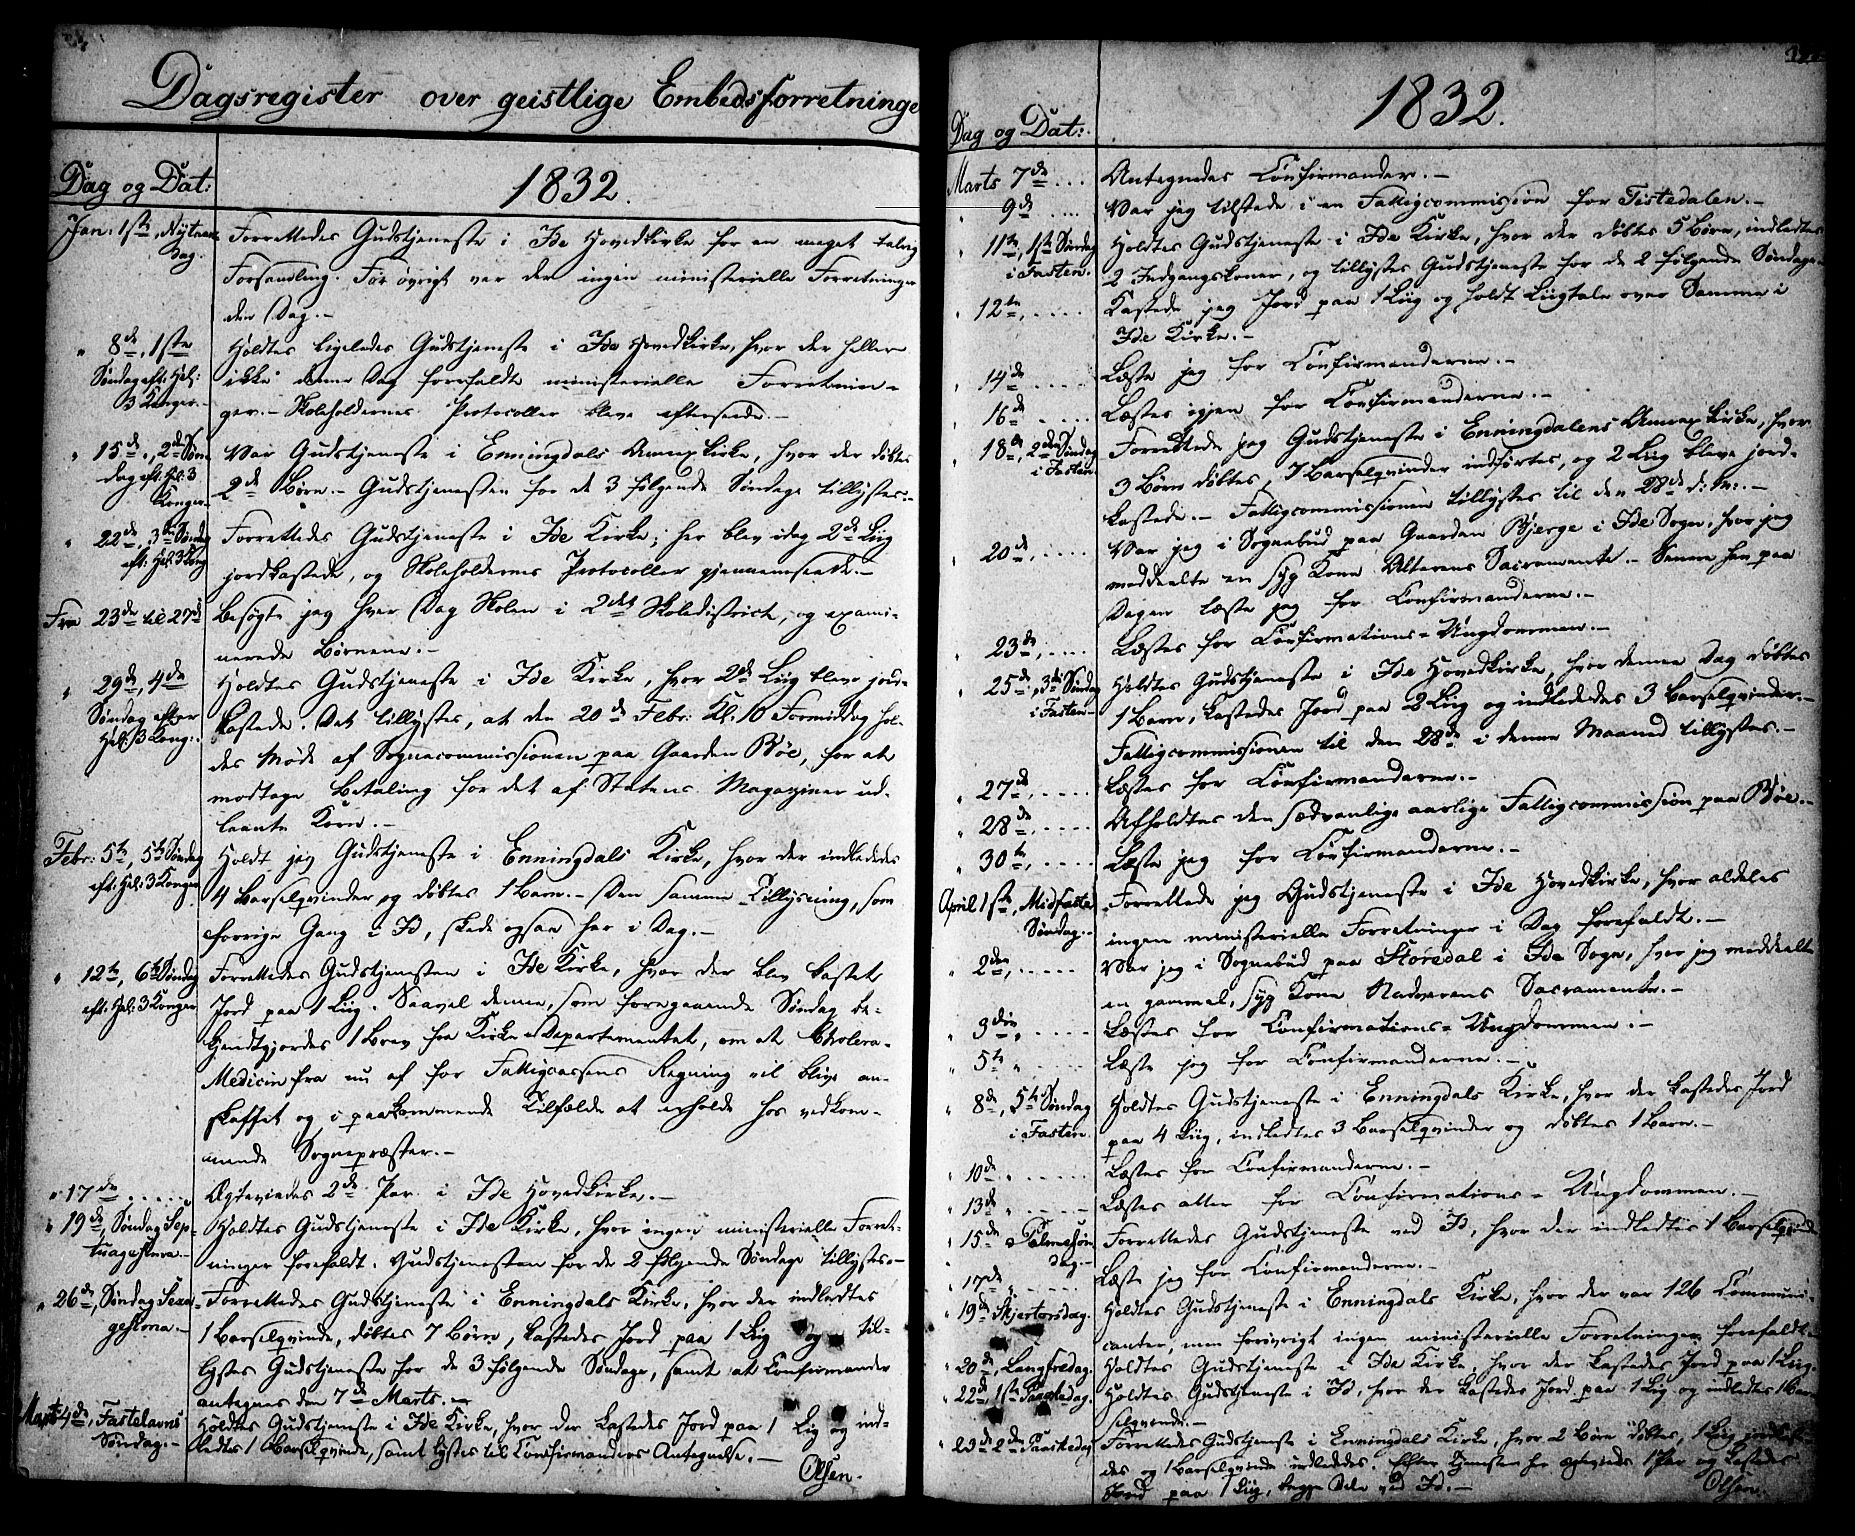 Dagsregister over geistlige Embedsforretninge
Dag og Dat: 1832.
Jan: 1ste, Nytaars Dag. Forrettedes Gudstjeneste i Ide Hovedkirke for en meget talrig
Forsamling. For øvrigt var der ingen ministerielle Forretninger
den Dag.-
" 8de, 1ste Søndag eft: Hel: 3 Konger.- Holdtes ligeledes Gudstjeneste i Ide Hovedkirke, hvor der heller
ikke denne Dag forefaldt ministerielle Forretnin=
ger.- Skoleholdernes Protocoller bleve efterseede.-
" 15de, 2de Søndag eft: Hel: 3 Konger.- Var Gudstjeneste i Enningdals Annexkirke, hvor der døbtes
2de Børn.- Gudstjenesten for de 3 følgende Søndage tillystes:-
" 22de, 3de Søndag eft: Hel: 3 Kong: Forrettedes Gudstjeneste i Ide Kirke; her blev idag 2de Liig
jordkastede, og Skoleholdernes Protocoller gjennemseede.-
Fra 23de til 27de Besøgte jeg hver Dag Skolen i 2det Skoledistrict, og exami=
nerede Børnene.-
" 29de, 4de Søndag efter Hel: 3 Kong:. Holdtes Gudstjeneste i Ide Kirke, hvor 2de Liig bleve jord=
kastede. Det tillystes, at den 20de Febr: Kl: 10 Formiddag hol=
des Møde af Sognecommissionen paa Gaarden Bøe, for at
modtage Betaling for det af Statens Magaziner ud=
laante Korn.-
Febr: 5te, 5te Søndag eft: Hel: 3 Konger Holdt jeg Gudstjeneste i Enningdals Kirke, hvor der indledes
4 Barselqvinder og døbtes 1 Barn.- Den samme Tillysning, som
forrige Gang i Id, skede ogsaa her i Dag.-
" 12te, 6te Søndag eft: Hel: 3 Konger Forrettedes Gudstjenesten i Ide Kirke, hvor der blev kastet
Jord paa 1 Liig. Saavel denne, som foregaaende Søndag be=
kjendtgjordes 1 Brev fra Kirke=Departementet, om at Cholera=
Medicin fra nu af for Fattigcassens Regning vil blive an=
skaffet og i paakommende Tilfælde at erholde hos vedkom=
mende Sognepræster.-
" 17de Ægteviedes 2de Par i Ide Hovedkirke.-
" 19de, Søndag Septuagesima.- Holdtes Gudstjeneste i Ide Kirke, hvor ingen ministerielle Forret=
ninger forefaldt. Gudstjenesten for de 2 følgende Søndage tillystes.-
" 26de, Søndag Sexagesima.- Forrettedes Gudstjeneste i Enningdals Kirke, hvor der indledtes
1 Barselqvinde, døbtes 7 Børn, kastedes Jord paa 1 Liig og til=
lystes Gudstjeneste for de 3 følgende Søndage, samt at Confirmander
antegnes den 7de Marts.-
Marts 4de, Fastelavns Søndag.- Holdtes Gudstjeneste i Ide Kirke, hvor der kastedes Jord paa 1 Liig og ind=
ledtes 1 Barselqvinde, samt lystes til Confirmanders Antegnelse.-
Olsen.
Dag og Dat: 1832.
Marts 7de Antegnedes Confirmander.-
" 9de Var jeg tilstede i en Fattigcommission for Tistedalen.-
" 11te, 1ste Søndag i Fasten. Holdtes Gudstjeneste i Ide Kirke, hvor der døbtes 5 Børn, indledtes
2 Indgangskoner, og tillystes Gudstjeneste for de 2 følgende Søndage.-
" 12te, Kastede jeg Jord paa 1 Liig og holdt Liigtale over Samme i
Ide Kirke.-
" 14de Læste jeg for Confirmanderne.-
" 16de Læstes igjen for Confirmanderne.-
" 18de, 2den Søndag i Fasten. Forrettede jeg Gudstjeneste i Enningdalens Annexkirke, hvor
3 Børn døbtes, 7 Barselqvinder indførtes, og 2 Liig bleve jord=
kastede.- Fattigcommissionen tillystes til den 28de d: M:.-
" 20de, Var jeg i Sognebud paa Gaarden Bjerge i Ide Sogn, hvor jeg
meddeelte en syg Kone Alterens Sacramente.- Senere hen paa
Dagen læste jeg for Confirmanderne.-
" 23de, Læstes for Confirmations=Ungdommen.-
" 25de, 3de Søndag i Fasten.- Holdtes Gudstjeneste i Ide Hovedkirke, hvor denne Dag døbtes
1 Barn, kastedes Jord paa 2 Liig og indledtes 3 Barselqvinder.-
Fattigcommissionen til den 28de i denne Maaned tillystes.-
" 27de, Læstes for Confirmanderne.-
" 28de, Afholdtes den sædvanlige aarlige Fattigcommission paa Bøe.-
" 30te, Læste jeg for Confirmanderne.-
April 1ste, Midfaste Søndag.- Forrettede jeg Gudstjeneste i Ide Hovedkirke, hvor aldeles
ingen ministerielle Forretninger i Dag forefaldt.-
" 2den, Var jeg i Sognebud paa Storedal i Ide Sogn, hvor jeg meddeelte
en gammel, syg Kone Nadverens Sacramente.-
" 3die, Læstes for Confirmations=Ungdommen.-
" 5te " Læste jeg for Confirmanderne.-
" 8de, 5te Søndag i Fasten. Holdtes Gudstjeneste i Enningdals Kirke, hvor der kastedes Jord
paa 4 Liig, indledtes 3 Barselqvinder og døbtes 1 Barn.-
" 10de " Læstes for Confirmanderne.-
" 13de " Læstes atter for Confirmations=Ungdommen.-
" 15de, Palmesøndag.- Forrettedes Gudstjeneste ved Id, hvor der indledtes 1 Barselqvinde
" 17de " Læste jeg for Confirmanderne.-
" 19de Skjertorsdag. Holdtes Gudstjeneste i Enningdals Kirke, hvor der var 126 Communi=
canter, men forøvrigt ingen ministerielle Forretninger forefaldt.-
" 20de, Langfredag. Holdtes Gudstjeneste i Ide Kirke, hvor der kastedes Jord paa 1 Liig.
" 22de, 1ste Paaskedag. Holdtes Gudstjeneste i Id, hvor der kastedes Jord paa 1 Liig og indledtes 1 Bar=
selqvinde.-
" 23de 2de Paaskedag Forrettedes Gudstjeneste i Enningdals Kirke, hvor 2 Børn døbtes, 1 Liig
des og 1 Barselqvinde indleddes. Efter Tjenesten her ægteviedes 1 Par og kastedes
Jord paa 1 Liig, begge Dele ved Id.-
Olsen.